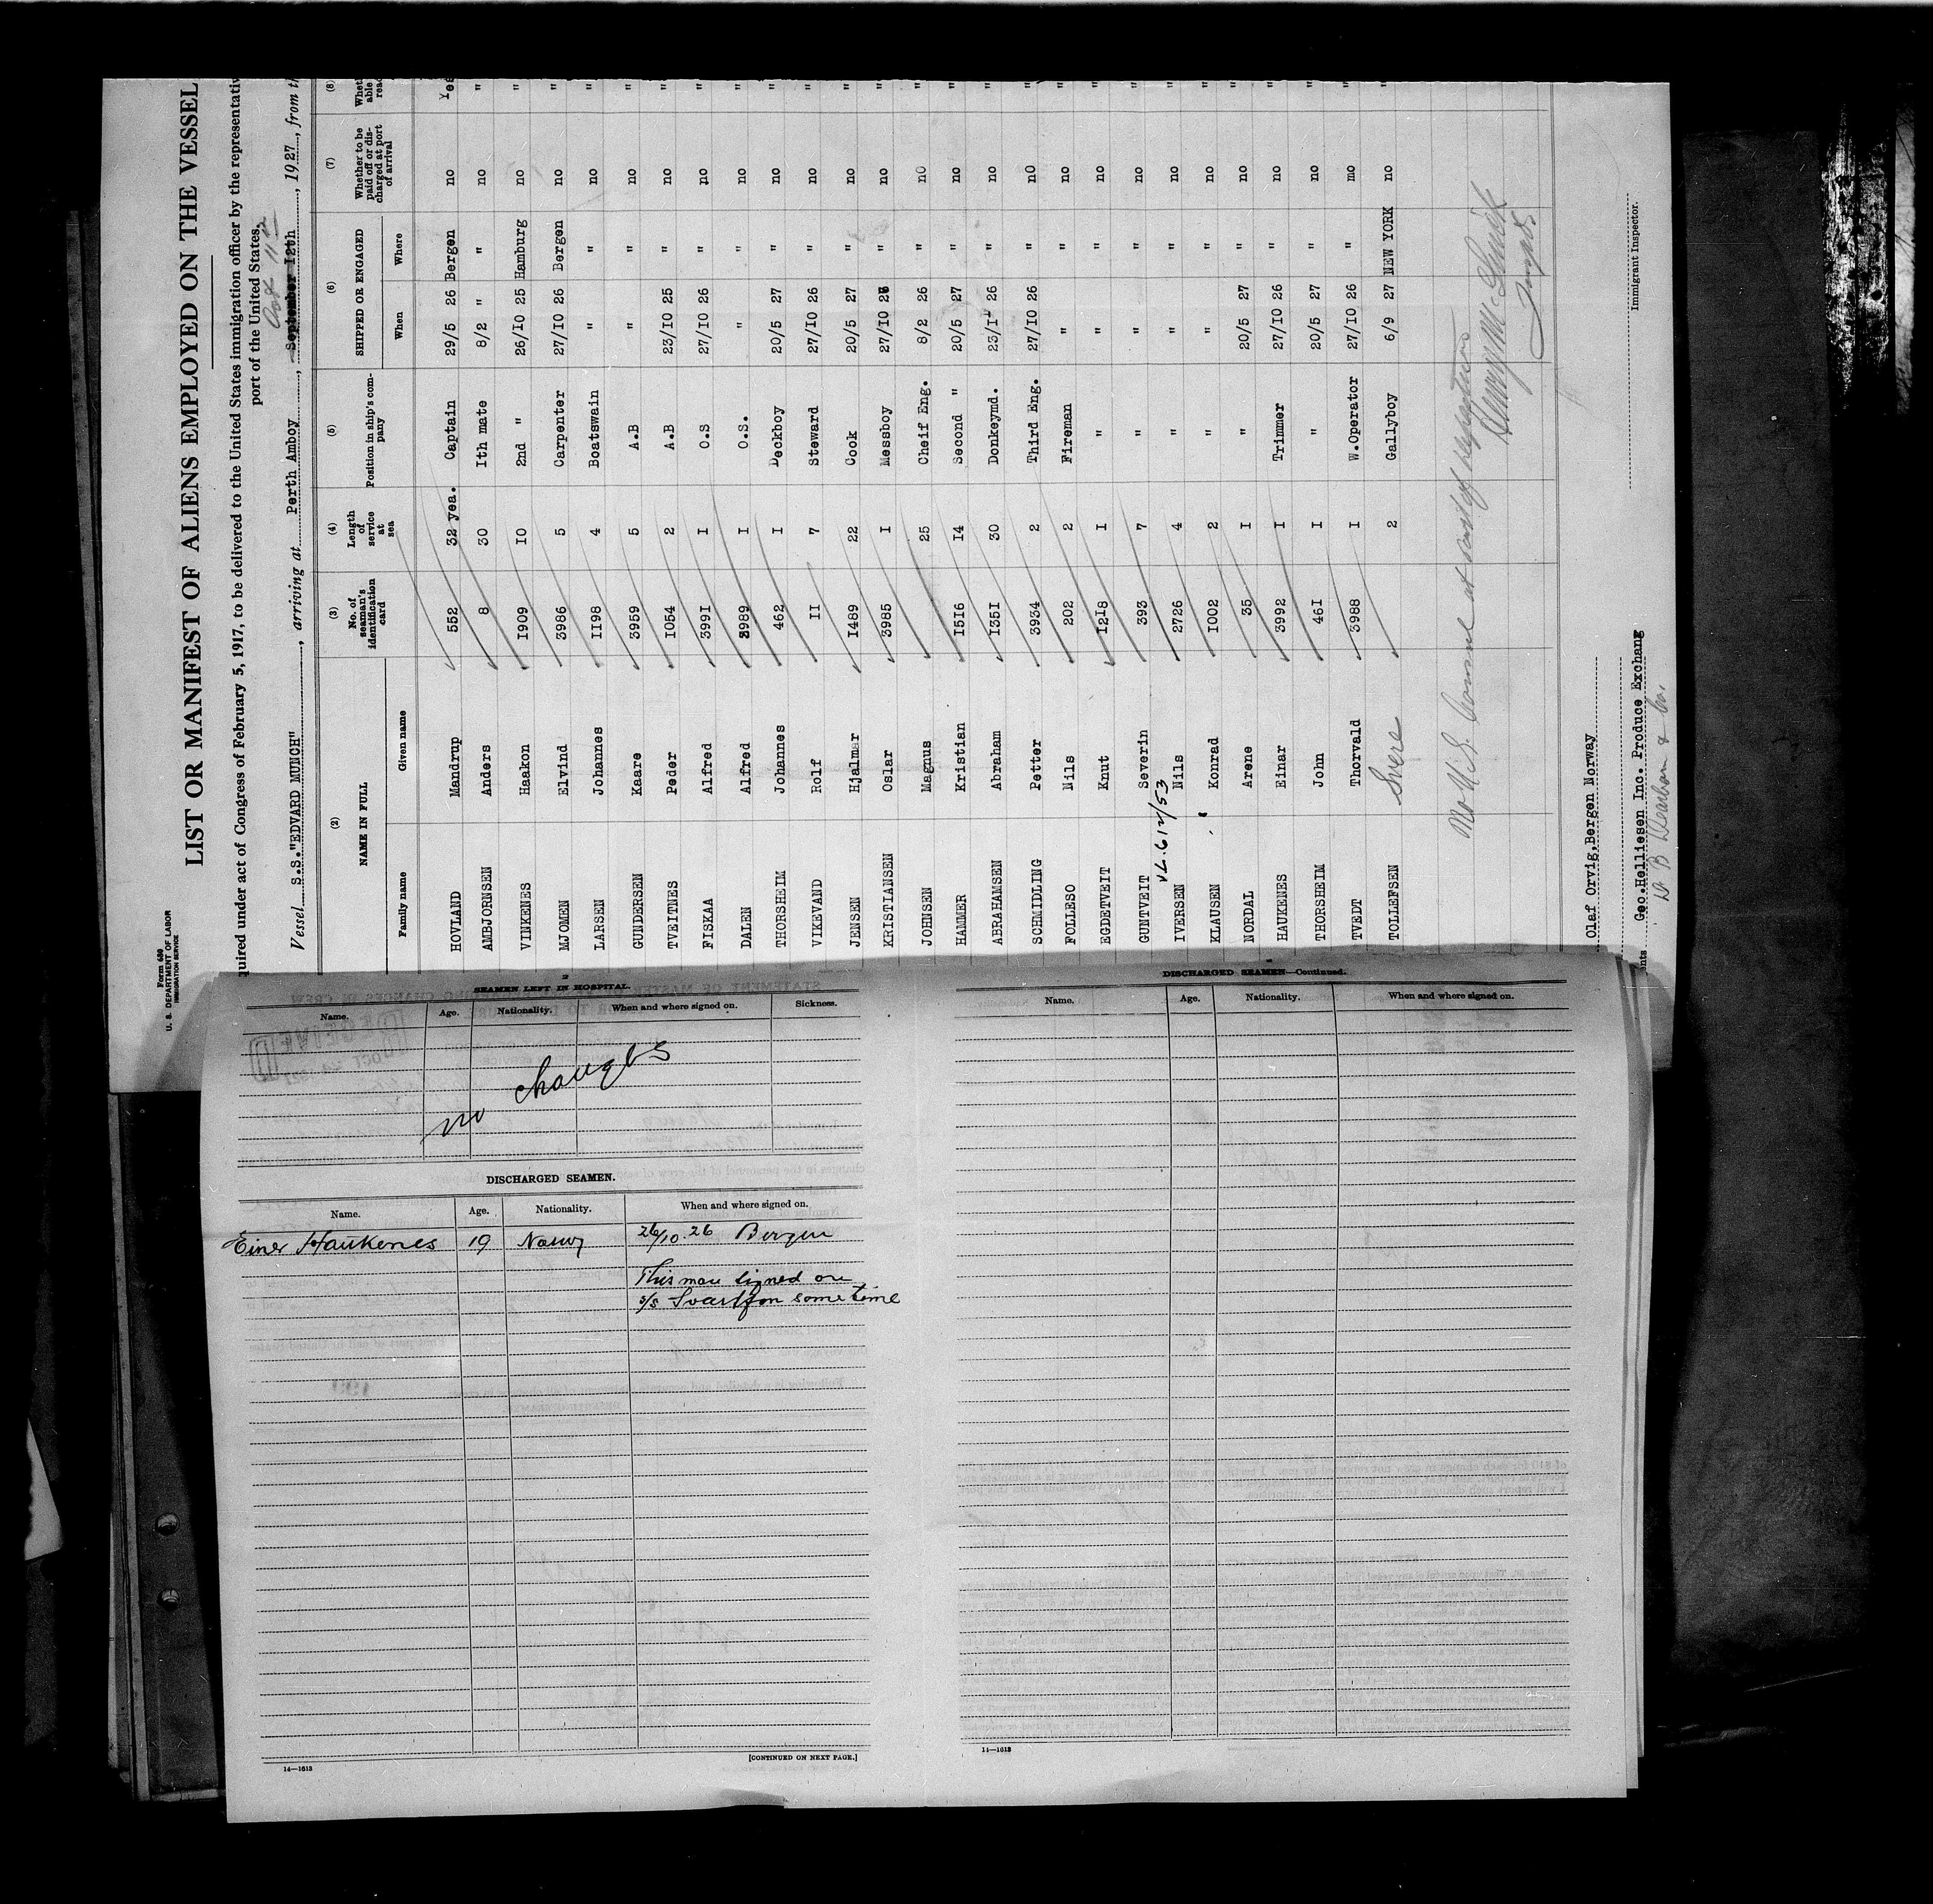 Form 680
U. S. DEPARTMENT OF LABOR
IMMIGRATION SERVICE
LIST OR MANIFEST OF ALIENS EMPLOYED ON THE VESSEL
quired under act of Congress of February 5, 1917, to be delivered to the United States immigration officer by the representativ
port of the United States.
Oct 11
Vessel S.S."EDVARD MUNCH", arriving at Perth Amboy, September 12th, 1927, from th
(2) (3) (4) (5) (6) (7) (8)
NAME IN FULL No. of seaman's identification card Length of service at sea Position in ship's company SHIPPED OR ENGAGED Whether to be paid off or discharged at port of arrival Whet able rea
Family name Given name When Where
HOVLAND Mandrup 552 32 yea. Captain 29/5 26 Bergen no Yes
AMBJORNSEN Anders 8 30 Ith mate 8/2 " " no "
VINKENES Haakon I909 I0 2nd " 26/I0 25 Hamburg no "
MJOMEN Elvind 3986 5 Carpenter 27/I0 26 Bergen no "
LARSEN Johannes II98 4 Boatswain " " no "
GUNDERSEN Kaare 3959 5 A.B " " no "
TVEITNES Peder I054 2 A.B 23/I0 25 " no "
FISKAA Alfred 399I I O.S 27/I0 26 " no "
DALEN Alfred 3989 I O.S. " " no "
THORSHEIM Johannes 462 I Deckboy 20/5 27 " no "
VIKEVAND Rolf II 7 Steward 27/I0 26 " no "
JENSEN Hjalmar I489 22 Cook 20/5 27 " no "
KRISTIANSEN Oslar 3985 I Messboy 27/I0 26 " no "
JOHNSEN Magnus 25 Cheif Eng. 8/2 26 " no "
HAMMER Kristian I5I6 I4 Second " 20/5 27 " no "
ABRAHAMSEN Abraham I35I 30 Donkeymd. 23/I 26 " no "
SCHMIDLING Petter 3934 2 Third Eng. 27/I0 26 " no "
FOLLESO Nils 202 2 Fireman " " no "
EGDETVEIT Knut I2I8 I " " " no "
GUNTVEIT Severin 393 7 " " " no "
VL.612/53
IVERSEN Nils 2726 4 " " " no "
KLAUSEN Konrad I002 2 " " " no "
NORDAL Arene 35 I " 20/5 27 " no "
HAUKENES Einar 3992 I Trimmer 27/I0 26 " no "
THORSHEIM John 46I I " 20/5 27 " no "
TVEDT Thorvald 3988 I W.Operator 27/I0 26 " mo "
TOLLEFSEN Svere 2 Gallyboy 6/9 27 NEW YORK no "
No U.S. Consul at port of departure
Olaf Orvig,Bergen Norway
Geo.Helliesen Inc. Produce Exchang
W B Dearborn & Co.
Immigrant Inspector.
SEAMEN LEFT IN HOSPITAL.
Name. Age. Nationality. When and where signed on. Sickness.
no changes
DISCHARGED SEAMEN.
Name. Age. Nationality. When and where signed on.
Einer Haukenes 19 Norwg 26/10.26 Bergen
This man signed on
s/s Svartfon some time
[CONTINUED ON NEXT PAGE.]
14—1613
DISCHARGED SEAMEN—Continued.
Name. Age. Nationality. When and where signed on.
14—1613